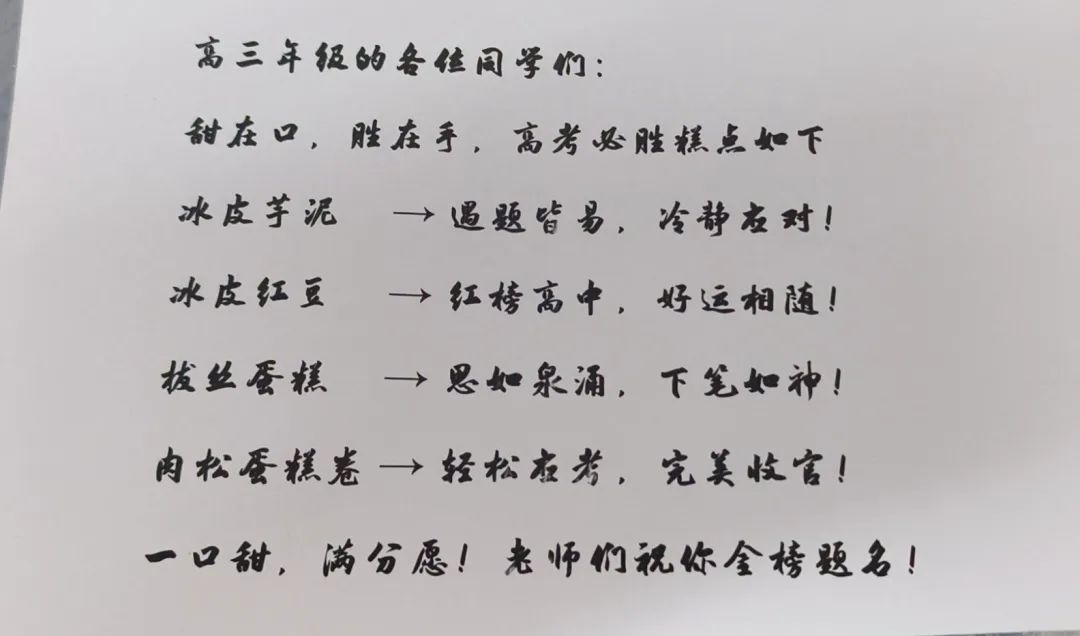 高三年级的各位同学们：
甜在口，胜在手，高考必胜糕点如下
冰皮芋泥 → 遇题皆易，冷静应对！
冰皮红豆 → 红榜高中，好运相随！
拔丝蛋糕 → 思如泉涌，下笔如神！
肉松蛋糕卷 → 轻松应考，完美收官！
一口甜，满分愿！老师们祝你金榜题名！